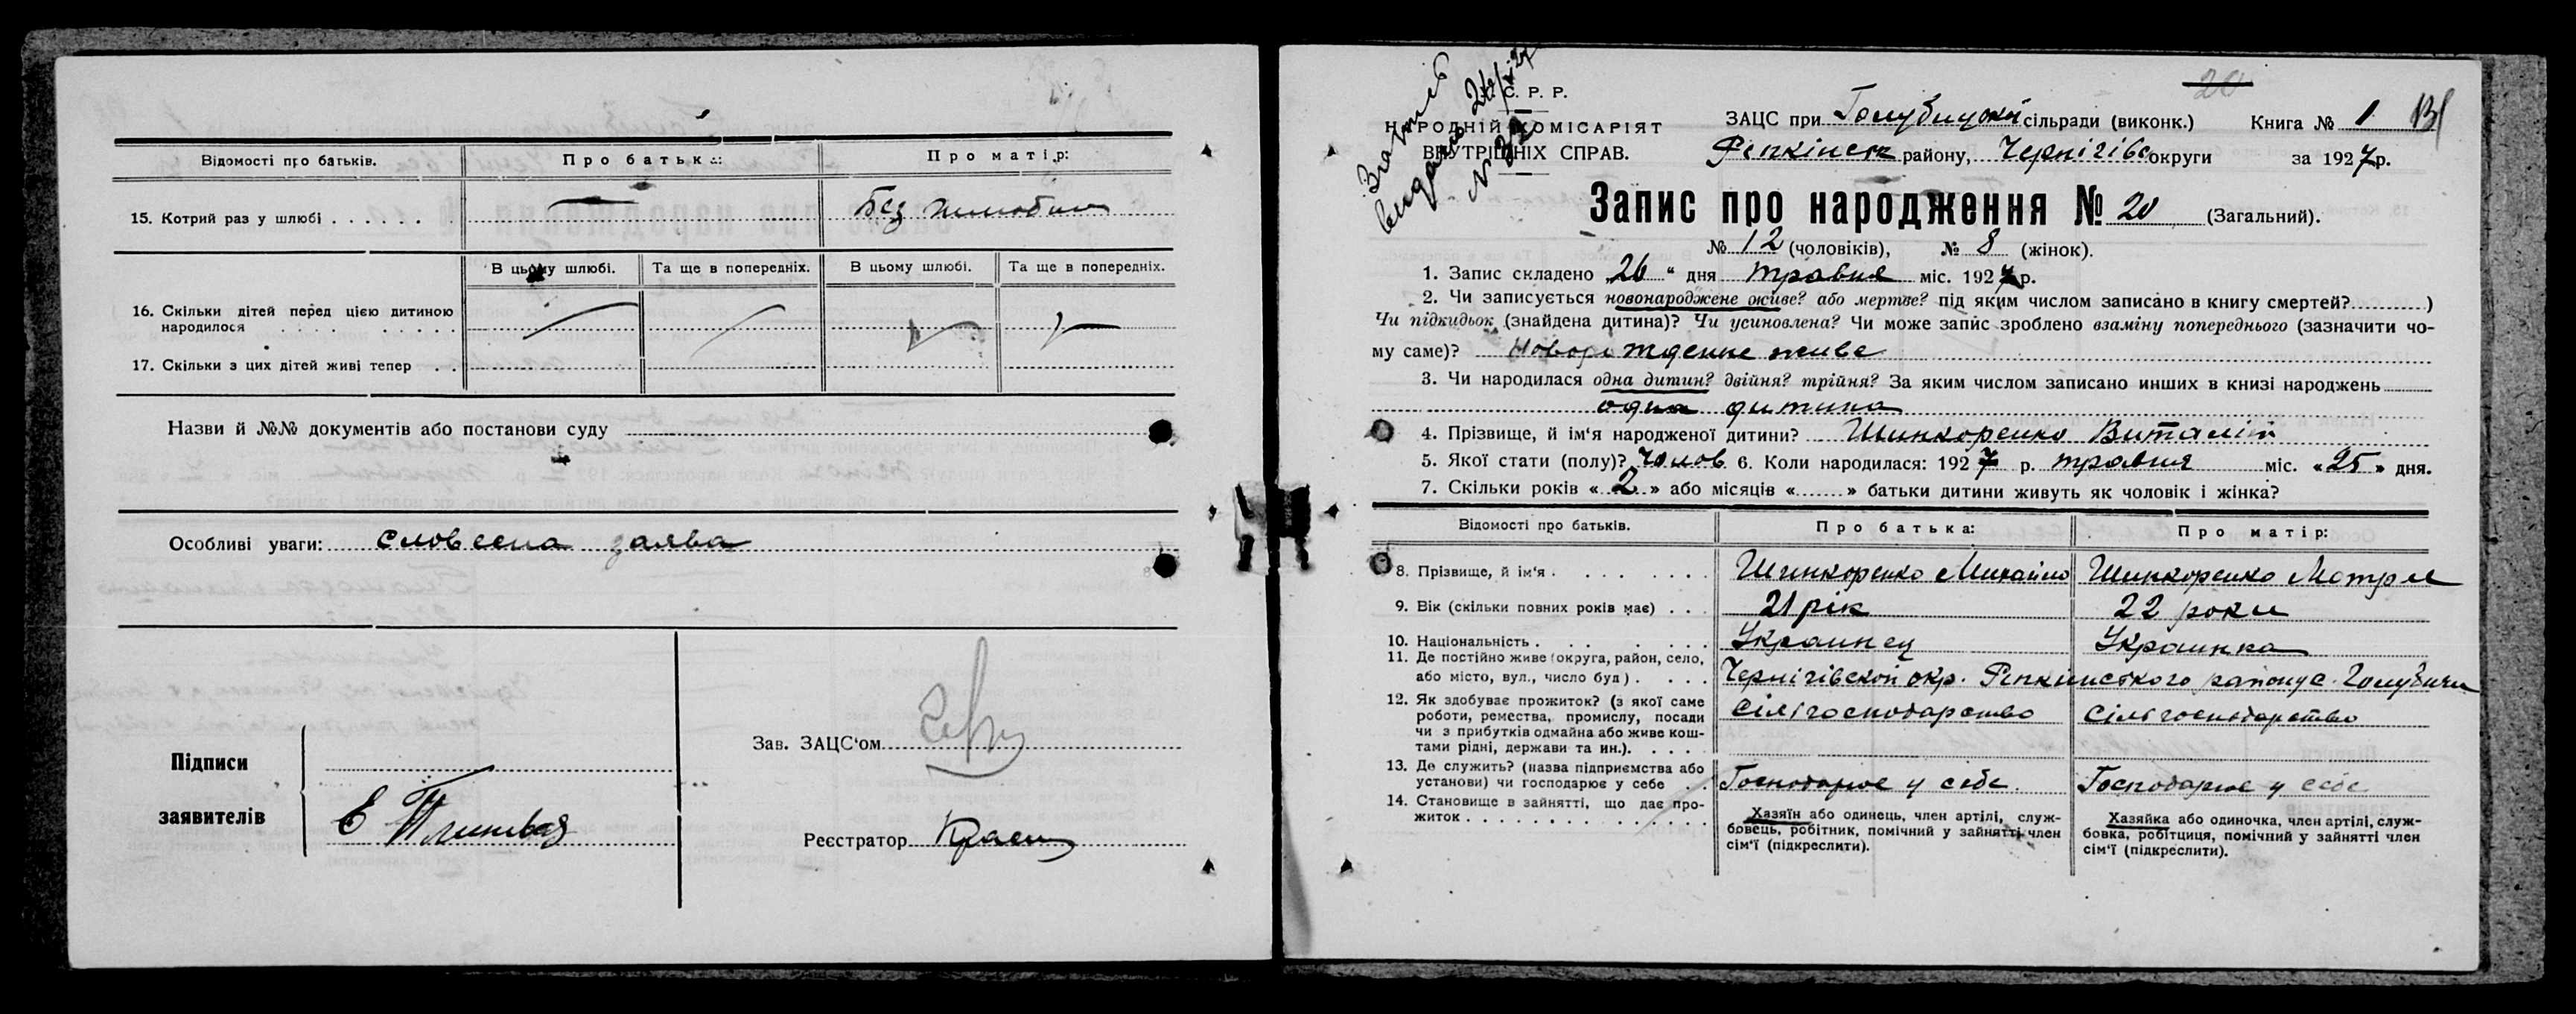 Відомості про батьків.
Про батька:
Про матір:
15. Котрий раз у шлюбі . . . . . .
Без шлюбом
В цьому шлюбі.
Та ще в попередніх.
В цьому шлюбі.
Та ще в попередніх.
16. Скільки дітей перед цією дитиною
народилося . . . . . . . . .
17. Скільки з цих дітей живі тепер . .
Назви й №№ документів або постанови суду
Особливі уваги: словесна заява
Підписи
заявителів
Е
Зав. ЗАЦС'ом
Реєстратор
С. Р. Р.
НАРОДНІЙ КОМІСАРІЯТ
ВНУТРІШНІХ СПРАВ.
видано 26/V 27
20
ЗАЦС при Голубицькой сільради (виконк.) Книга № 1
Ріпкінск району, Чернігівс округи за 1927 р.
Запис про народження № 20 (Загальний).
№ 12 (чоловіків), № 8 (жінок).
1. Запис складено „26“ дня травня міс. 1927 р.
2. Чи записується новонароджене живе? або мертве? під яким числом записано в книгу смертей?.........)
Чи підкидьок (знайдена дитина)? Чи усиновлена? Чи може запис зроблено взаміну попереднього (зазначити чо-
му саме)? Новорожденне живе
3. Чи народилася одна дитин? двійня? трійня? За яким числом записано инших в книзі народжень
одна дитина
4. Прізвище, й ім'я народженої дитини? Шинкоренко Виталій
5. Якої статі (полу)? Чолов. 6. Коли народилася: 1927 р. травня міс. «25» дня.
7. Скільки років «2» або місяців «.......» батьки дитини живуть як чоловік і жінка?
Відомості про батьків.
Про батька:
Про матір:
8. Прізвище, й ім'я . . . . . . .
Шинкоренко Михайло
Шинкоренко Мотря
9. Вік (скільки повних років має) . . .
21 рік
22 роки
10. Національність . . . . . . .
Украинец
Украинка
11. Де постійно живе (округа, район, село,
або місто, вул., число буд) . . . .
Чернігівской окр. Ріпкинсткого району с. Голубичи
12. Як здобуває прожиток? (з якої саме
роботи, ремества, промислу, посади
чи з прибутків одмайна або живе кош-
тами рідні, держави та ин.). . . . .
Сільгосподарство
Сільгосподарство
13. Де служить? (назва підприємства або
установи) чи господарює у себе . .
Господарює у себе.
Господарює у себе
14. Становище в зайнятті, що дає про-
житок . . . . . . . . . . . . .
Хазяїн або одинець, член артілі, служ-
бовець, робітник, помічний у зайнятті член
сім'ї (підкреслити).
Хазяйка або одиночка, член артілі, служ-
бовка, робітниця, помічний у зайнятті член
сім'ї (підкреслити).